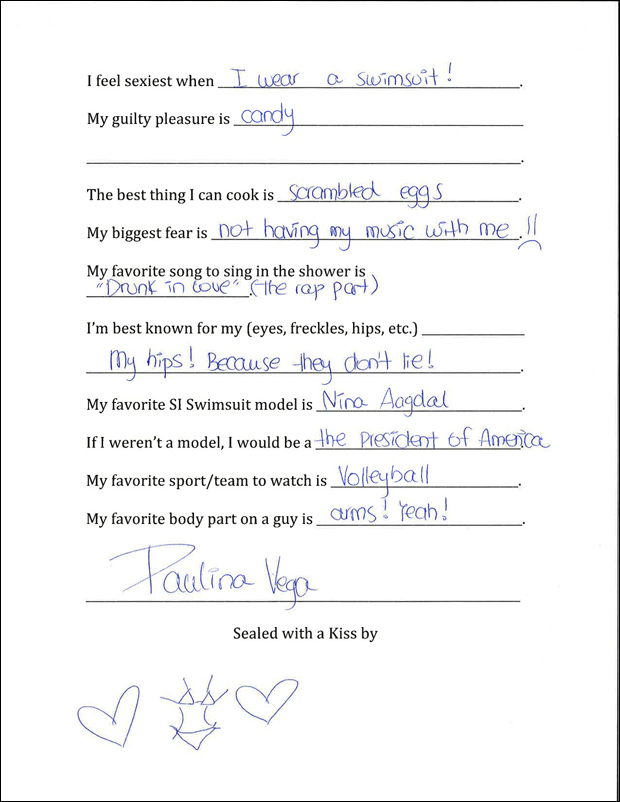 I feel sexiest when I wear a swimsuit! .
My guilty pleasure is candy
.
The best thing I can cook is scrambled eggs .
My biggest fear is not having my music with me . !!
My favorite song to sing in the shower is
"Drunk in Love" . (the rap part)
I'm best known for my (eyes, freckles, hips, etc.)
My hips! Because they don't lie! .
My favorite SI Swimsuit model is Nina Aagdal .
If I weren't a model, I would be a the President of America
My favorite sport/team to watch is Volleyball .
My favorite body part on a guy is arms! Yeah! .
Paulina Vega
Sealed with a Kiss by